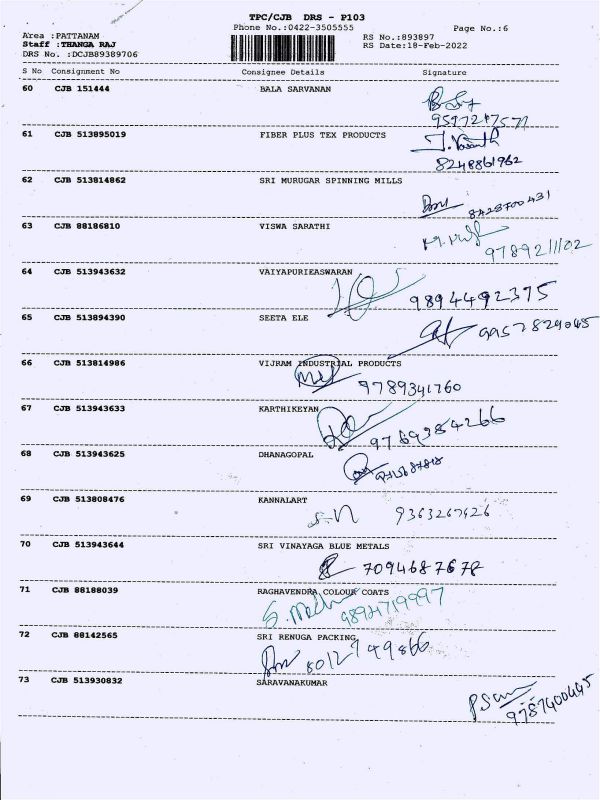 TPC/CJB DRS - P103
Phone No.:0422-3505555
Page No.:6
Area :PATTANAM
RS No.:893897
Staff :THANGA RAJ
RS Date:18-Feb-2022
DRS No. :DCJB89389706
S No Consignment No Consignee Details Signature
60 CJB 151444 BALA SARVANAN
61 CJB 513895019 FIBER PLUS TEX PRODUCTS
8248861962
62 CJB 513814862 SRI MURUGAR SPINNING MILLS
8428700431
63 CJB 88186810 VISWA SARATHI
9789211102
64 CJB 513943632 VAIYAPURIEASWARAN
9894492375
65 CJB 513894390 SEETA ELE
9957829045
66 CJB 513814986 VIJRAM INDUSTRIAL PRODUCTS
9789341760
67 CJB 513943633 KARTHIKEYAN
9769384266
68 CJB 513943625 DHANAGOPAL
69 CJB 513808476 KANNALART
S-N 9363267426
70 CJB 513943644 SRI VINAYAGA BLUE METALS
7094687678
71 CJB 88188039 RAGHAVENDRA COLOUR COATS
9894719997
72 CJB 88142565 SRI RENUGA PACKING
8012749866
73 CJB 513930832 SARAVANAKUMAR
9787400445